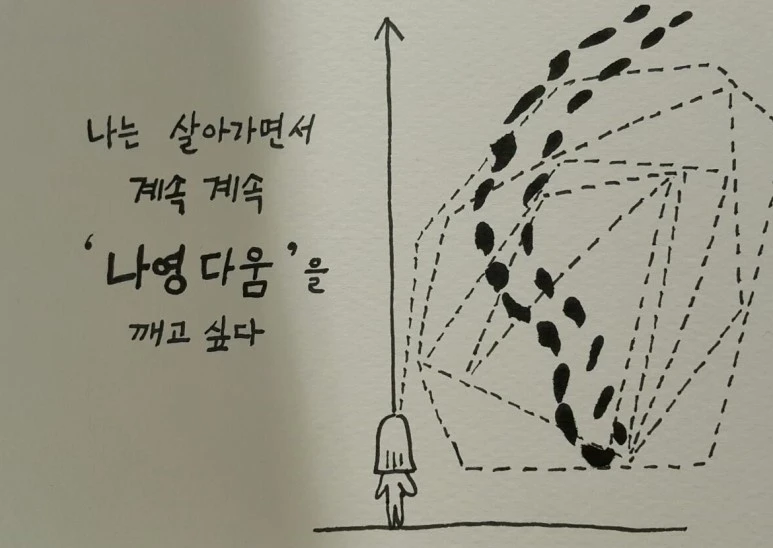 나는 살아가면서
계속 계속
‘나영다움’을
깨고 싶다